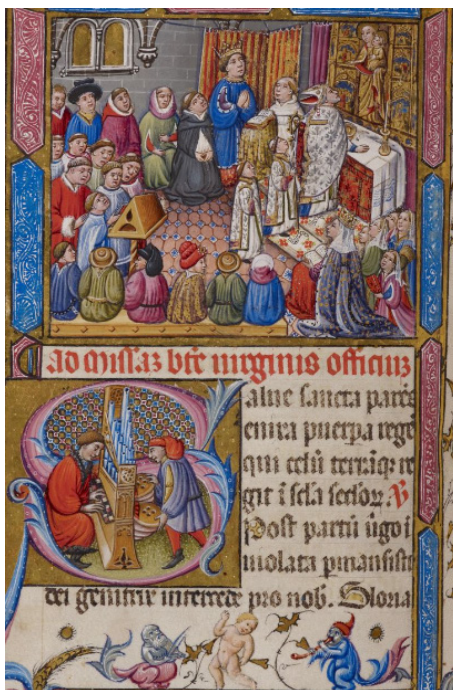 Ad missaz bte uirginis officiuz
Salue sancta parēs
enixa puerpa regē
qui celū terrāq; re
git ī scła scłoꝝ. V̄
Post partū ūgo ī
uiolata pmansisti
dei genitrix intercede pro nob. Gloria